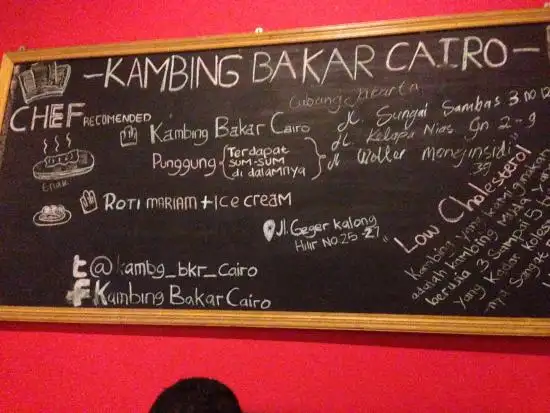 -KAMBING BAKAR CAIRO-
Cabang Jakarta
CHEF RECOMENDED
Kambing Bakar Cairo
Punggung { Terdapat
SUM-SUM
di dalamnya }
Jl. Sungai Sambas 3 no 12
Jl. Kelapa Nias Gn 2-9
Jl Wolter Monginsidi
39
Enak
ROTI MARIAM + ICE CREAM
Jl. Geger kalong
Hilir No. 25-27
"Low Cholesterol"
Kambing yang kami gunakan
adalah kambing Muda yang
berusia 3 Sampai 5
yang Kadar Koles
-nya Sangat
t @kambg_bkr_cairo
f Kambing Bakar Cairo